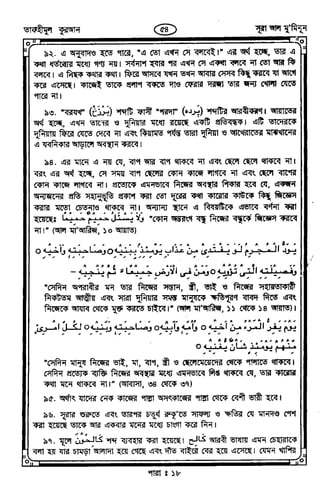 তাফহীমুল কুরআন
৫৪
সূরা আল মু'মিনূন
৯২. এ অনুবাদও হতে পারে, "এ তো এখন সে বলবেই।" এর অর্থ হচ্ছে, তার এ
কথা ধর্তব্যের মধ্যে গণ্য নয়। সর্বনাশ হবার পর এখন সে একথা বলবে না তো আর কি
বলবে। এ নিছক কথার কথা। ফিরে আসবে যখন তখন আবার সেসব কিছু করবে যা আগে
করে এসেছে। কাজেই তাকে প্রলাপ বকতে দাও ফেরার দরজা তার জন্য খোলা যেতে
পারে না।
৯৩. "বরযখ" (برزخ) শব্দটি ফার্সী "পরদা" (پرده) শব্দটির আরবীকরণ। আয়াতের
অর্থ হচ্ছে, এখন তাদের ও দুনিয়ার মধ্যে রয়েছে একটি প্রতিবন্ধক। এটি তাদেরকে
দুনিয়ায় ফিরে যেতে দেবে না এবং কিয়ামত পর্যন্ত তারা দুনিয়া ও আখেরাতের মাঝখানের
এ যবনিকার আড়ালে অবস্থান করবে।
৯৪. এর মানে এ নয় যে, বাপ আর বাপ থাকবে না এবং ছেলে ছেলে থাকবে না।
বরং এর অর্থ হচ্ছে, সে সময় বাপ ছেলের কোন কাজে লাগবে না এবং ছেলে বাপের
কোন কাজে লাগবে না। প্রত্যেকে এমনভাবে নিজের অবস্থার শিকার হবে যে, একজন
অন্যজনের প্রতি সহানুভূতি প্রকাশ করা তো দূরের কথা কারোর কাউকে কিছু জিজ্ঞেস
করার মতো চেতনাও থাকবে না। অন্যান্য স্থানে এ বিষয়টিকে এভাবে বর্ণনা করা
হয়েছেঃ وَلَا يَسْئَلُ حَمِيمٌ حَمِيمًا "কোন অন্তরংগ বন্ধু নিজের বন্ধুকে জিজ্ঞেস করবে
না।" (আল মা'আরিজ, ১০ আয়াত)
يَوَدُّ الْمُجْرِمُ لَوْ يَفْتَدِى مِنْ عَذَابِ يَوْمِئِذٍ بِبَنِيهِ ○ وَصَاحِبَتِهِ وَاَخِيهِ ○
وَفَصِيلَتِهِ الَّتِى تُؤْيِهِ ○ وَمَنْ فِى الْاَرْضِ جَمِيعًا ثُمَّ يُنْجِيهِ –
"সেদিন অপরাধীর মন তার নিজের সন্তান, স্ত্রী, ভাই ও নিজের সহায়তাকারী
নিকটতম আত্মীয় এবং সারা দুনিয়ার সমস্ত মানুষকে ক্ষতিপূরণ বাবদ দিতে এবং
নিজেকে আযাব থেকে মুক্ত করতে চাইবে।" (আল মা'আরিজ, ১১ থেকে ১৪ আয়াত)।
يَوْمَ يَفِرُّ الْمَرْءُ مِنْ اَخِيهِ ○ وَاُمِّهِ وَاَبِيهِ ○ وَصَاحِبَتِهِ وَبَنِيهِ ○ لِكُلِّ امْرِئٍ
مِّنْهُمْ يَوْمَئِذٍ شَاْنٌ يُّغْنِيهِ ○
"সেদিন মানুষ নিজের ভাই, মা, বাপ, স্ত্রী ও ছেলেমেয়েদের থেকে পালাতে থাকবে।
সেদিন প্রত্যেক ব্যক্তি নিজের অবস্থার মধ্যে এমনভাবে লিপ্ত থাকবে যে, তার কারোর
কথা মনে থাকবে না।" (আবাসা, ৩৪ থেকে ৩৭)
৯৫. অর্থাৎ যাদের নেক কাজের পাল্লা অসৎকাজের পাল্লা থেকে বেশী ভারী হবে।
৯৬. সূরার শুরুতে এবং তারপর চতুর্থ রুকূ'তে সাফল্য ও ক্ষতির যে মানদণ্ড পেশ
করা হয়েছে তাকে আর একবার মনের মধ্যে চাংগা করে নিন।
৯৭. মূলে كَالِحُونَ শব্দ ব্যবহার করা হয়েছে। كَالِح আরবী ভাষায় এমন চেহারাকে
বলা হয় যার চামড়া আলাদা হয়ে গেছে এবং দাঁত বাইরে বের হয়ে এসেছে। যেমন খাশির
পারা ঃ ১৮